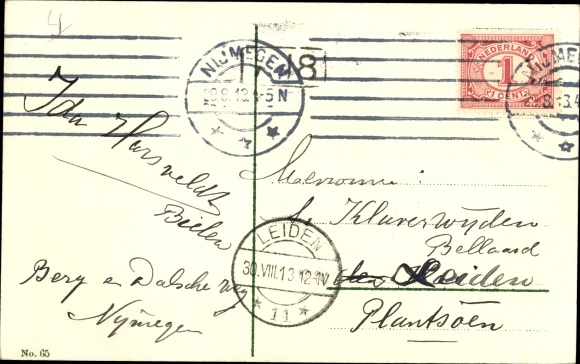 4
NIJMEGEN
29.8.13.4-5 N
18
NEDERLAND
1
1 CENT
NIJMEGEN
Ida Harsveldt
Bielen
Berg en Dalsche weg
Nijmegen
Mevrouw:
Kluverwijden
Bellaard
Leiden
Plantsoen
LEIDEN
30.VIII.13 12-1V
11
No. 65